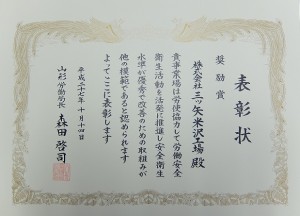 表彰状
奨励賞
株式会社三ツ矢米沢工場 殿
貴事業場は労使協力して労働安全
衛生活動を活発に推進し安全衛生
水準が優秀で改善のための取組みが
他の模範であると認められます
よってここに表彰します
平成二十七年十月十四日
山形労働局長 森田啓司